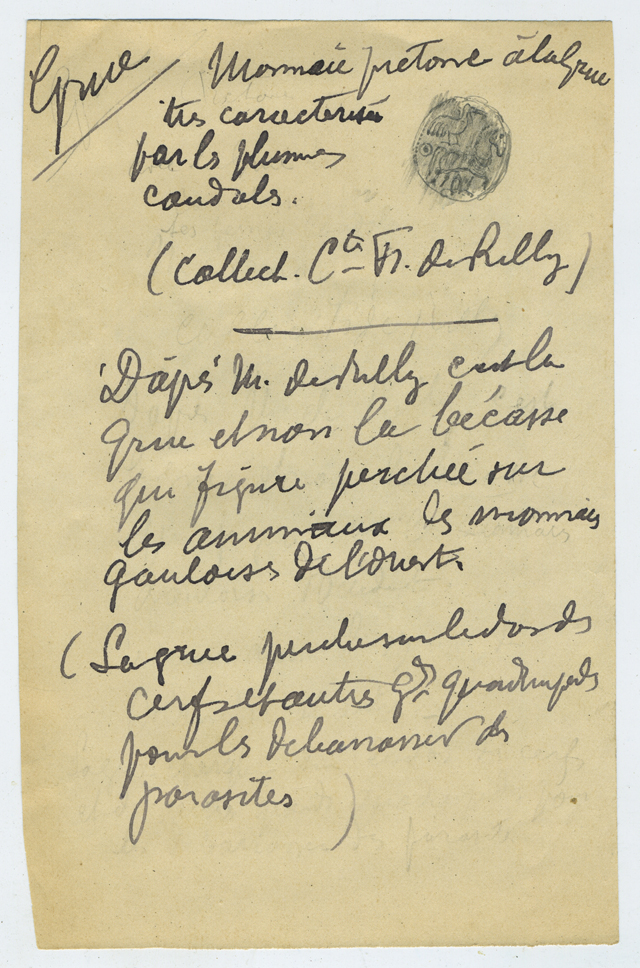 Grue
Monnaie pretone à la Grue
tres caracterisée
par les plumes
caudals.
(Collect. Cte Fr. de Rilly)
D'apès M. de Rilly c'est la
grue et non la bécasse
qui figure perchée sur
les animaux les monnais
gauloises de l'Ouest.
(La grue perche sur le dos des
cerfs et autres gds quadrupeds
pour les debarrasser des
parasites)